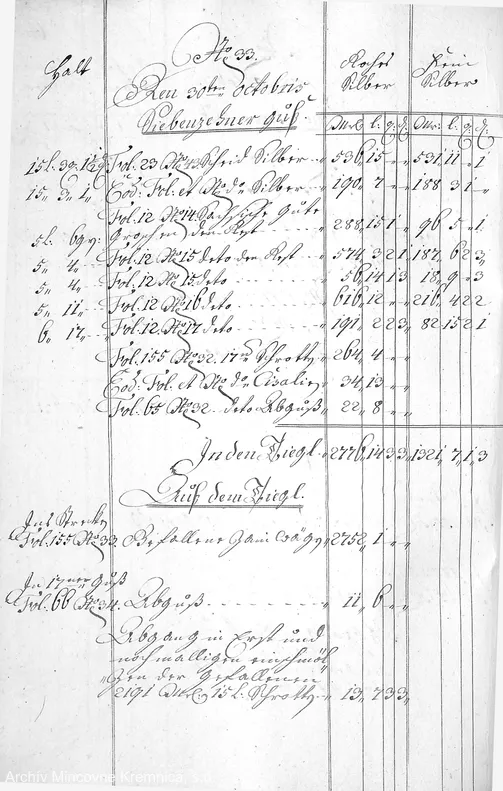 No 33.
Halt
Den 30ten Octobris
Siebenzehner Guß
Roches Silber
Fein Silber
Mrk. l: q: d:
Mrk: l: q: d:
15 l. 3 q: Fol: 23 No 43 Scheid Silber 536, 15 - - 531, 11 - 1
15, 3, 1, Eod: Fol: et No do Silber 190, 7 - - 188, 3, 1 -
Fol. 12 No 14 Sächsische Gute
5 l. 6 gr: Groschen den Rest 288, 15, 1 - 96, 5 - 1
5, 4, Fol. 12 No 15 deto den Rest 574, 3, 2, 1, 187, 6, 2, 3
5, 4, Fol. 12 No 15 deto 56, 14, 1, 3 18, 9 - 3
5, 11, Fol. 12 No 16 deto 616, 12 - - 216, 4, 2, 2
6, 17, Fol. 12 No 17 deto 191, 2, 2, 3, 82, 15, 2, 1
Fol. 155 No 32. 17er Schrotty 264, 4 - -
Eod. Fol. et No do Cisalien 34, 13 - -
Fol. 65 No 32 deto Abguß 22, 8 - -
In den Tiegl. 2776, 14, 3, 3, 1321, 7, 1, 3
Auß dem Tiegl.
Ins Streck
Fol. 155 No 33 Gefallene Zain 2752, 1 - -
In 17ner Guß
Fol. 66 No 34. Abguß 11, 6 - -
Abgang in Erst und
nochmalligen einschmöl
zen der Gefallenen
2191 Mrk: 15 l. Schrotty 13, 7, 3, 3,
Archív Mincovne Kremnica, š.p.